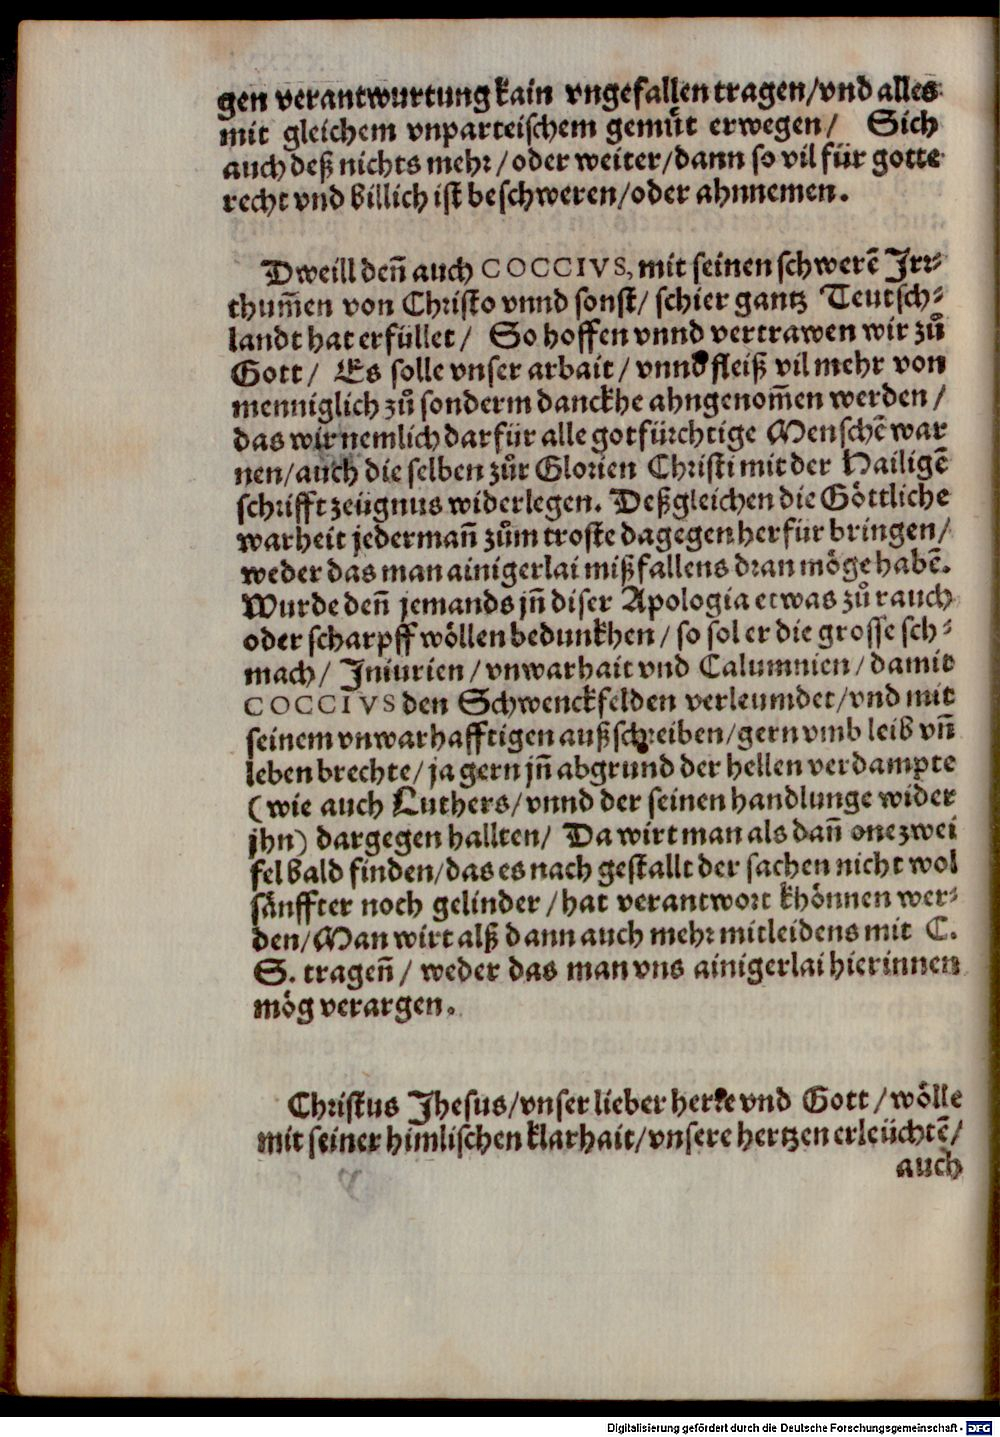 gen verantwurtung kain vngefallen tragen/vnd alles
mit gleichem vnparteischem gemüt erwegen/ Sich
auch deß nichts mehr/oder weiter/dann so vil für gotte
recht vnd billich ist beschweren/oder ahnnemen.
Dweill deñ auch COCCIVS, mit seinen schwerẽ Irr⸗
thum̃en von Christo vnnd sonst/ schier gantz Teutsch⸗
landt hat erfüllet/ So hoffen vnnd vertrawen wir zů
Gott/ Es solle vnser arbait/ vnnd fleiß vil mehr von
menniglich zů sonderm danckhe ahngenom̃en werden/
das wir nemlich darfür alle gotfürchtige Menschẽ war
nen/auch die selben zůr Glorien Christi mit der Hailigẽ
schrifft zeügnus widerlegen. Deßgleichen die Göttliche
warheit jedermañ zům troste dagegen herfür bringen/
weder das man ainigerlai mißfallens dran möge habẽ.
Wurde deñ jemands jñ diser Apologia etwas zů rauch
oder scharpff wöllen bedunkhen/ so sol er die grosse sch⸗
mach/ Iniurien/ vnwarhait vnd Calumnien/ damit
COCCIVS den Schwenckfelden verleumdet/vnd mit
seinem vnwarhafftigen außschreiben/gern vmb leib vñ
leben brechte/ ja gern jñ abgrund der hellen verdampte
(wie auch Luthers/ vnnd der seinen handlunge wider
jhn) dargegen hallten/ Da wirt man als dañ one zwei
fel bald finden/das es nach gestallt der sachen nicht wol
sänffter noch gelinder/hat verantwort khönnen wer⸗
den/Man wirt alß dann auch mehr mitleidens mit C.
S. trageñ/ weder das man vns ainigerlai hierinnen
mög verargen.
Christus Jhesus/vnser lieber herre vnd Gott/wölle
mit seiner himlischen klarhait/vnsere hertzen erleüchtẽ/
auch
Digitalisierung gefördert durch die Deutsche Forschungsgemeinschaft - DFG